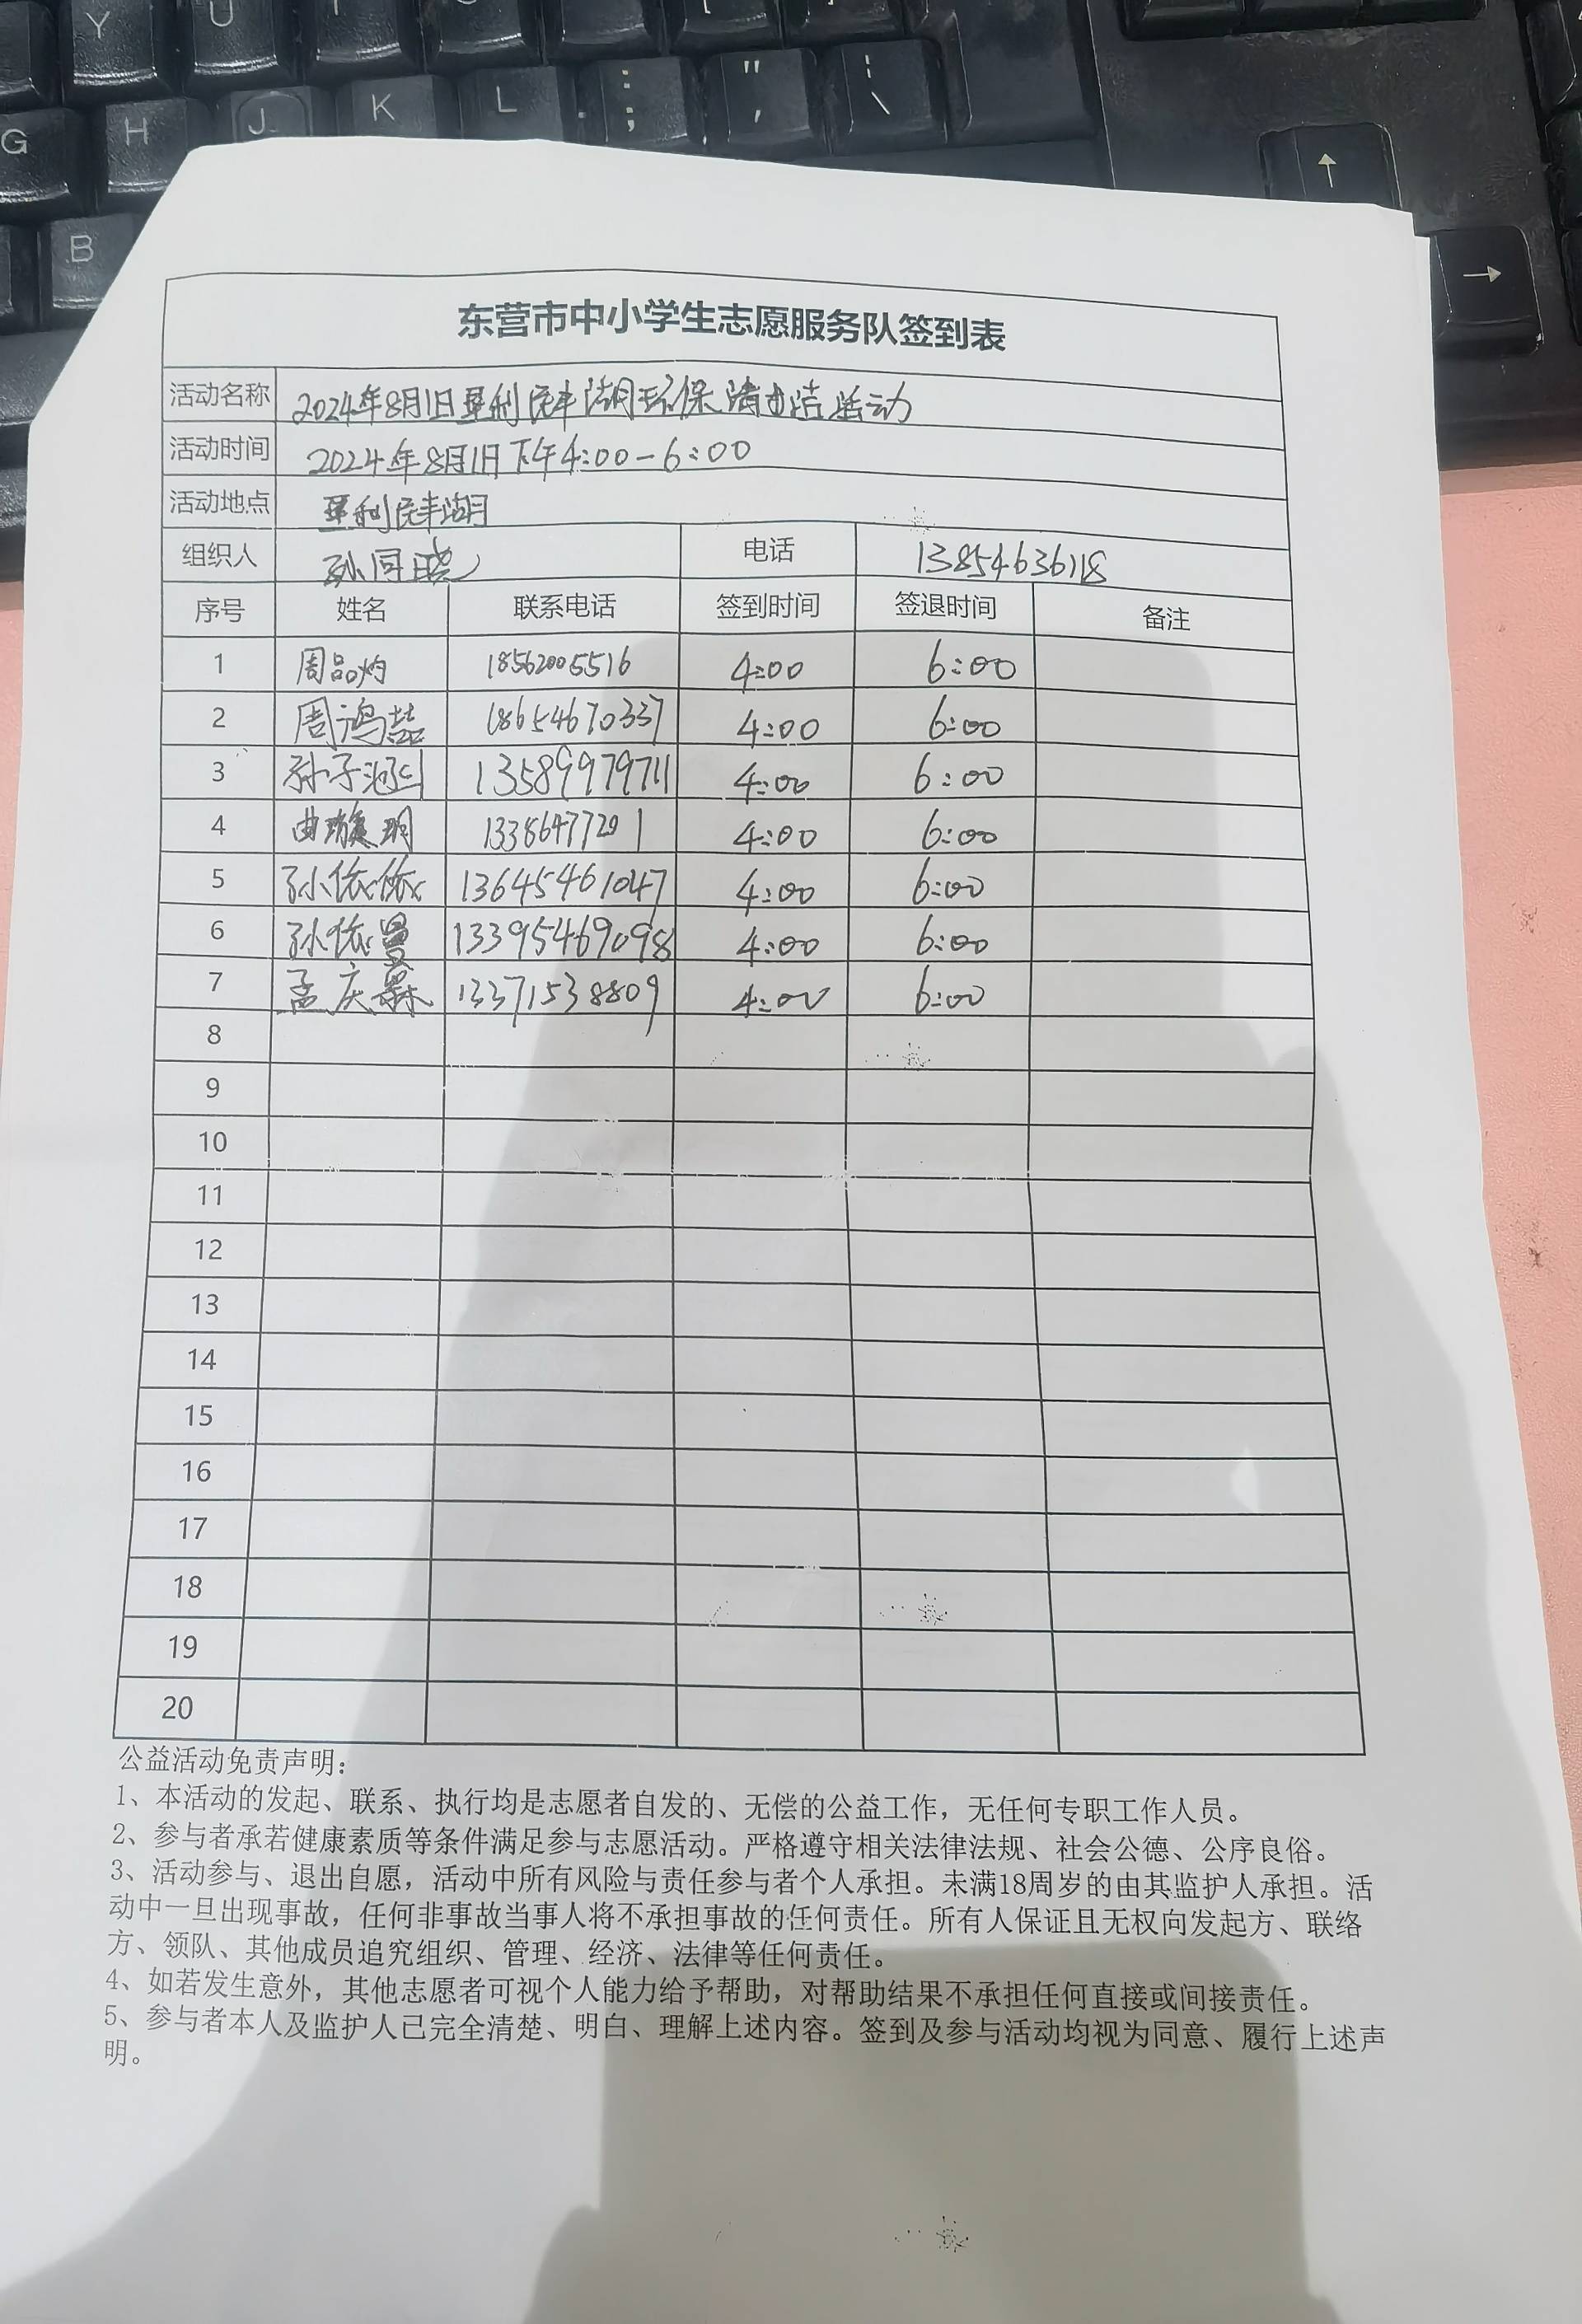 Y U I [ ]
G H J K L : ; " ' | \
B
↑
→
东营市中小学生志愿服务队签到表
活动名称 2024年8月1日垦利民丰湖环保清洁活动
活动时间 2024年8月1日下午4:00-6:00
活动地点 垦利民丰湖
组织人 孙同晓 电话 13854636118
序号 姓名 联系电话 签到时间 签退时间 备注
1 周品灼 18562005516 4:00 6:00
2 周鸿喆 18654670337 4:00 6:00
3 孙子涵 13589979711 4:00 6:00
4 曲璇玥 13386477291 4:00 6:00
5 孙依依 13645461047 4:00 6:00
6 孙依曼 13395469098 4:00 6:00
7 孟庆霖 13371538809 4:00 6:00
8
9
10
11
12
13
14
15
16
17
18
19
20
公益活动免责声明：
1、本活动的发起、联系、执行均是志愿者自发的、无偿的公益工作，无任何专职工作人员。
2、参与者承若健康素质等条件满足参与志愿活动。严格遵守相关法律法规、社会公德、公序良俗。
3、活动参与、退出自愿，活动中所有风险与责任参与者个人承担。未满18周岁的由其监护人承担。活
动中一旦出现事故，任何非事故当事人将不承担事故的任何责任。所有人保证且无权向发起方、联络
方、领队、其他成员追究组织、管理、经济、法律等任何责任。
4、如若发生意外，其他志愿者可视个人能力给予帮助，对帮助结果不承担任何直接或间接责任。
5、参与者本人及监护人已完全清楚、明白、理解上述内容。签到及参与活动均视为同意、履行上述声
明。